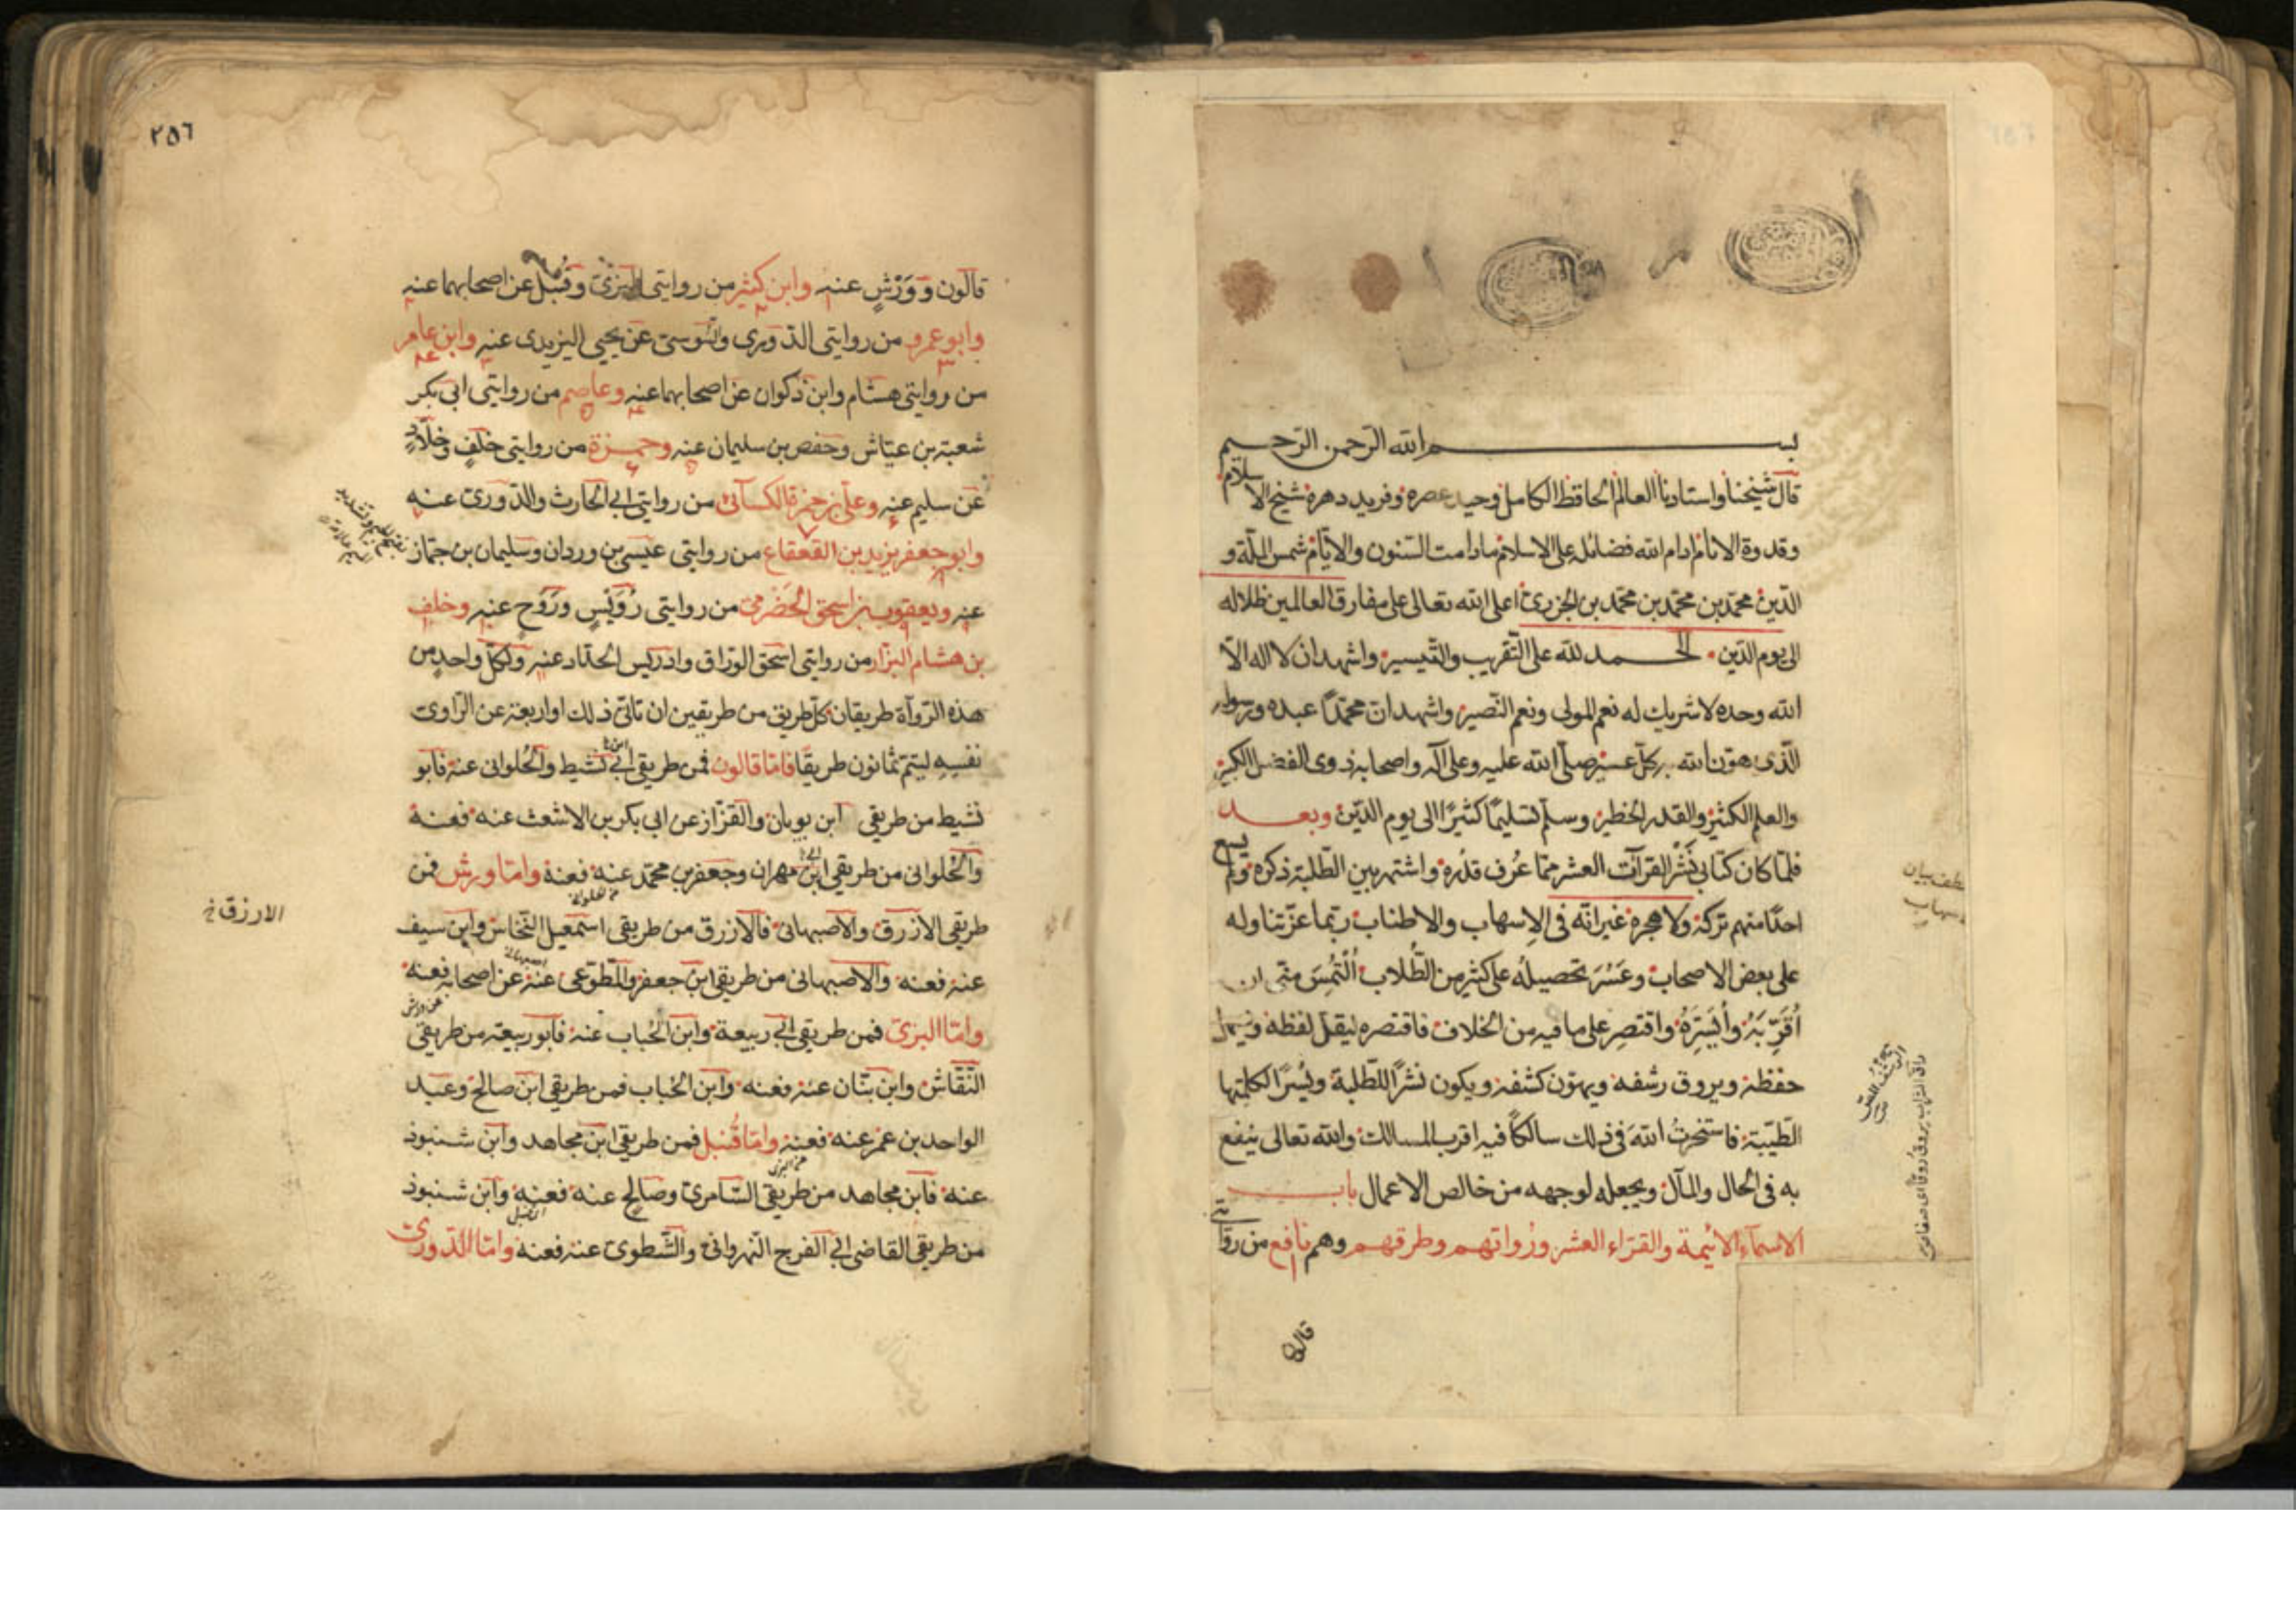 بسم الله الرحمن الرحيم
قال شيخنا واستاذنا العالم الحافظ الكامل وحيد عصره وفريد دهره شيخ الاسلام
وقدوة الانام ادام الله فضائله على الاسلام ما دامت السنون والايام شمس الملة و
الدين محمد بن محمد بن محمد بن الجزرى اعلى الله تعالى على مفارق العالمين ظلاله
الى يوم الدين الحمد لله على التقريب والتيسير واشهد ان لا اله الا
الله وحده لا شريك له نعم المولى ونعم النصير واشهد ان محمدًا عبده ورسوله
الذى هون الله به كل عسير صلى الله عليه وعلى آله واصحابه ذوى الفضل الكبير
والعلم الكثير والقدر الخطير وسلم تسليمًا كثيرًا الى يوم الدين وبعد
فلما كان كتابى نشر القرآآت العشر مما عُرف قدره واشتهر بين الطلبة ذكره ولم يسع
احدًا منهم تركه ولا هجره غير انه فى الاسهاب والاطناب ربما عز تناوله
على بعض الاصحاب وعَسُرَ تحصيله على كثير من الطُلاب اُلْتُمِسَ منى ان
اُقَرِّبَهُ وأُيَسِّرَهُ واقتصِر على ما فيه من الخلاف فاقتصره ليقل لفظه ويسهل
حفظه ويروق رشفه ويهون كشفه ويكون نشرًا للطلبة ويُسرًا لكلمتها
الطيبة فاستخرتُ اللهَ فى ذلك سالكًا فيه اقرب المسالك والله تعالى ينفع
به فى الحال والمآل ويجعله لوجهه من خالص الاعمال باب
الاسمآء الائيمة والقراء العشر ورُواتهم وطرقهم وهم نافع من روايتى
قالون
٢٥٦
قالون وَوَرْشٍ عنه وابن كثير من روايتى البزى وقُنبل عن اصحابهما عنه
وابو عمرو من روايتى الدورى والسوسى عن يحيى اليزيدى عنه وابن عامر
من روايتى هشام وابن ذكوان عن اصحابهما عنه وعاصم من روايتى ابى بكر
شعبة بن عياش وحفص بن سليمان عنه وحمزة من روايتى خلفٍ وخلّادٍ
عن سليم عنه وعلى بن حمزة الكسآئى من روايتى ابى الحارث والدورى عنه
وابو جعفر يزيد بن القعقاع من روايتى عيسى بن وردان وسليمان بن جماز
عنه ويعقوب بن اسحق الحَضْرمى من روايتى رُوَيْسٍ ورَوْحٍ عنه وخلف
بن هشام البزار من روايتى اسحق الوراق وادريس الحداد عنه ولكل واحدٍ من
هذه الرواة طريقان كل طريق من طريقين ان تأتى ذلك او اربعة عن الراوى
نفسِهِ ليتم ثمانون طريقًا فاما قالون فمن طريقى ابى نشيط والحُلوانى عنه فابو
نشيط من طريقى ابن بويان والقزاز عن ابى بكر بن الاشعث عنه فعنه
والحُلوانى من طريقى ابن مهران وجعفر بن محمد عنه فعنه واما ورش فمن
طريقى الازرق والاصبهانى فالازرق من طريقى اسمعيل النخاس وابن سيف
عنه فعنه والاصبهانى من طريقى ابن جعفر والمطوعى عنه عن اصحابه فعنه
واما البزى فمن طريقى ابى ربيعة وابن الحُباب عنه فابو ربيعة من طريقى
النقاش وابن بنان عنه فعنه وابن الحُباب فمن طريقى ابن صالح وعبد
الواحد بن عمر عنه فعنه واما قُنبل فمن طريقى ابن مجاهد وابن شنبوذ
عنه فابن مجاهد من طريقى السامرى وصالح عنه فعنه وابن شنبوذ
من طريقى القاضى ابى الفرج النهروانى والشطوى عنه فعنه واما الدورى
الازرق خ